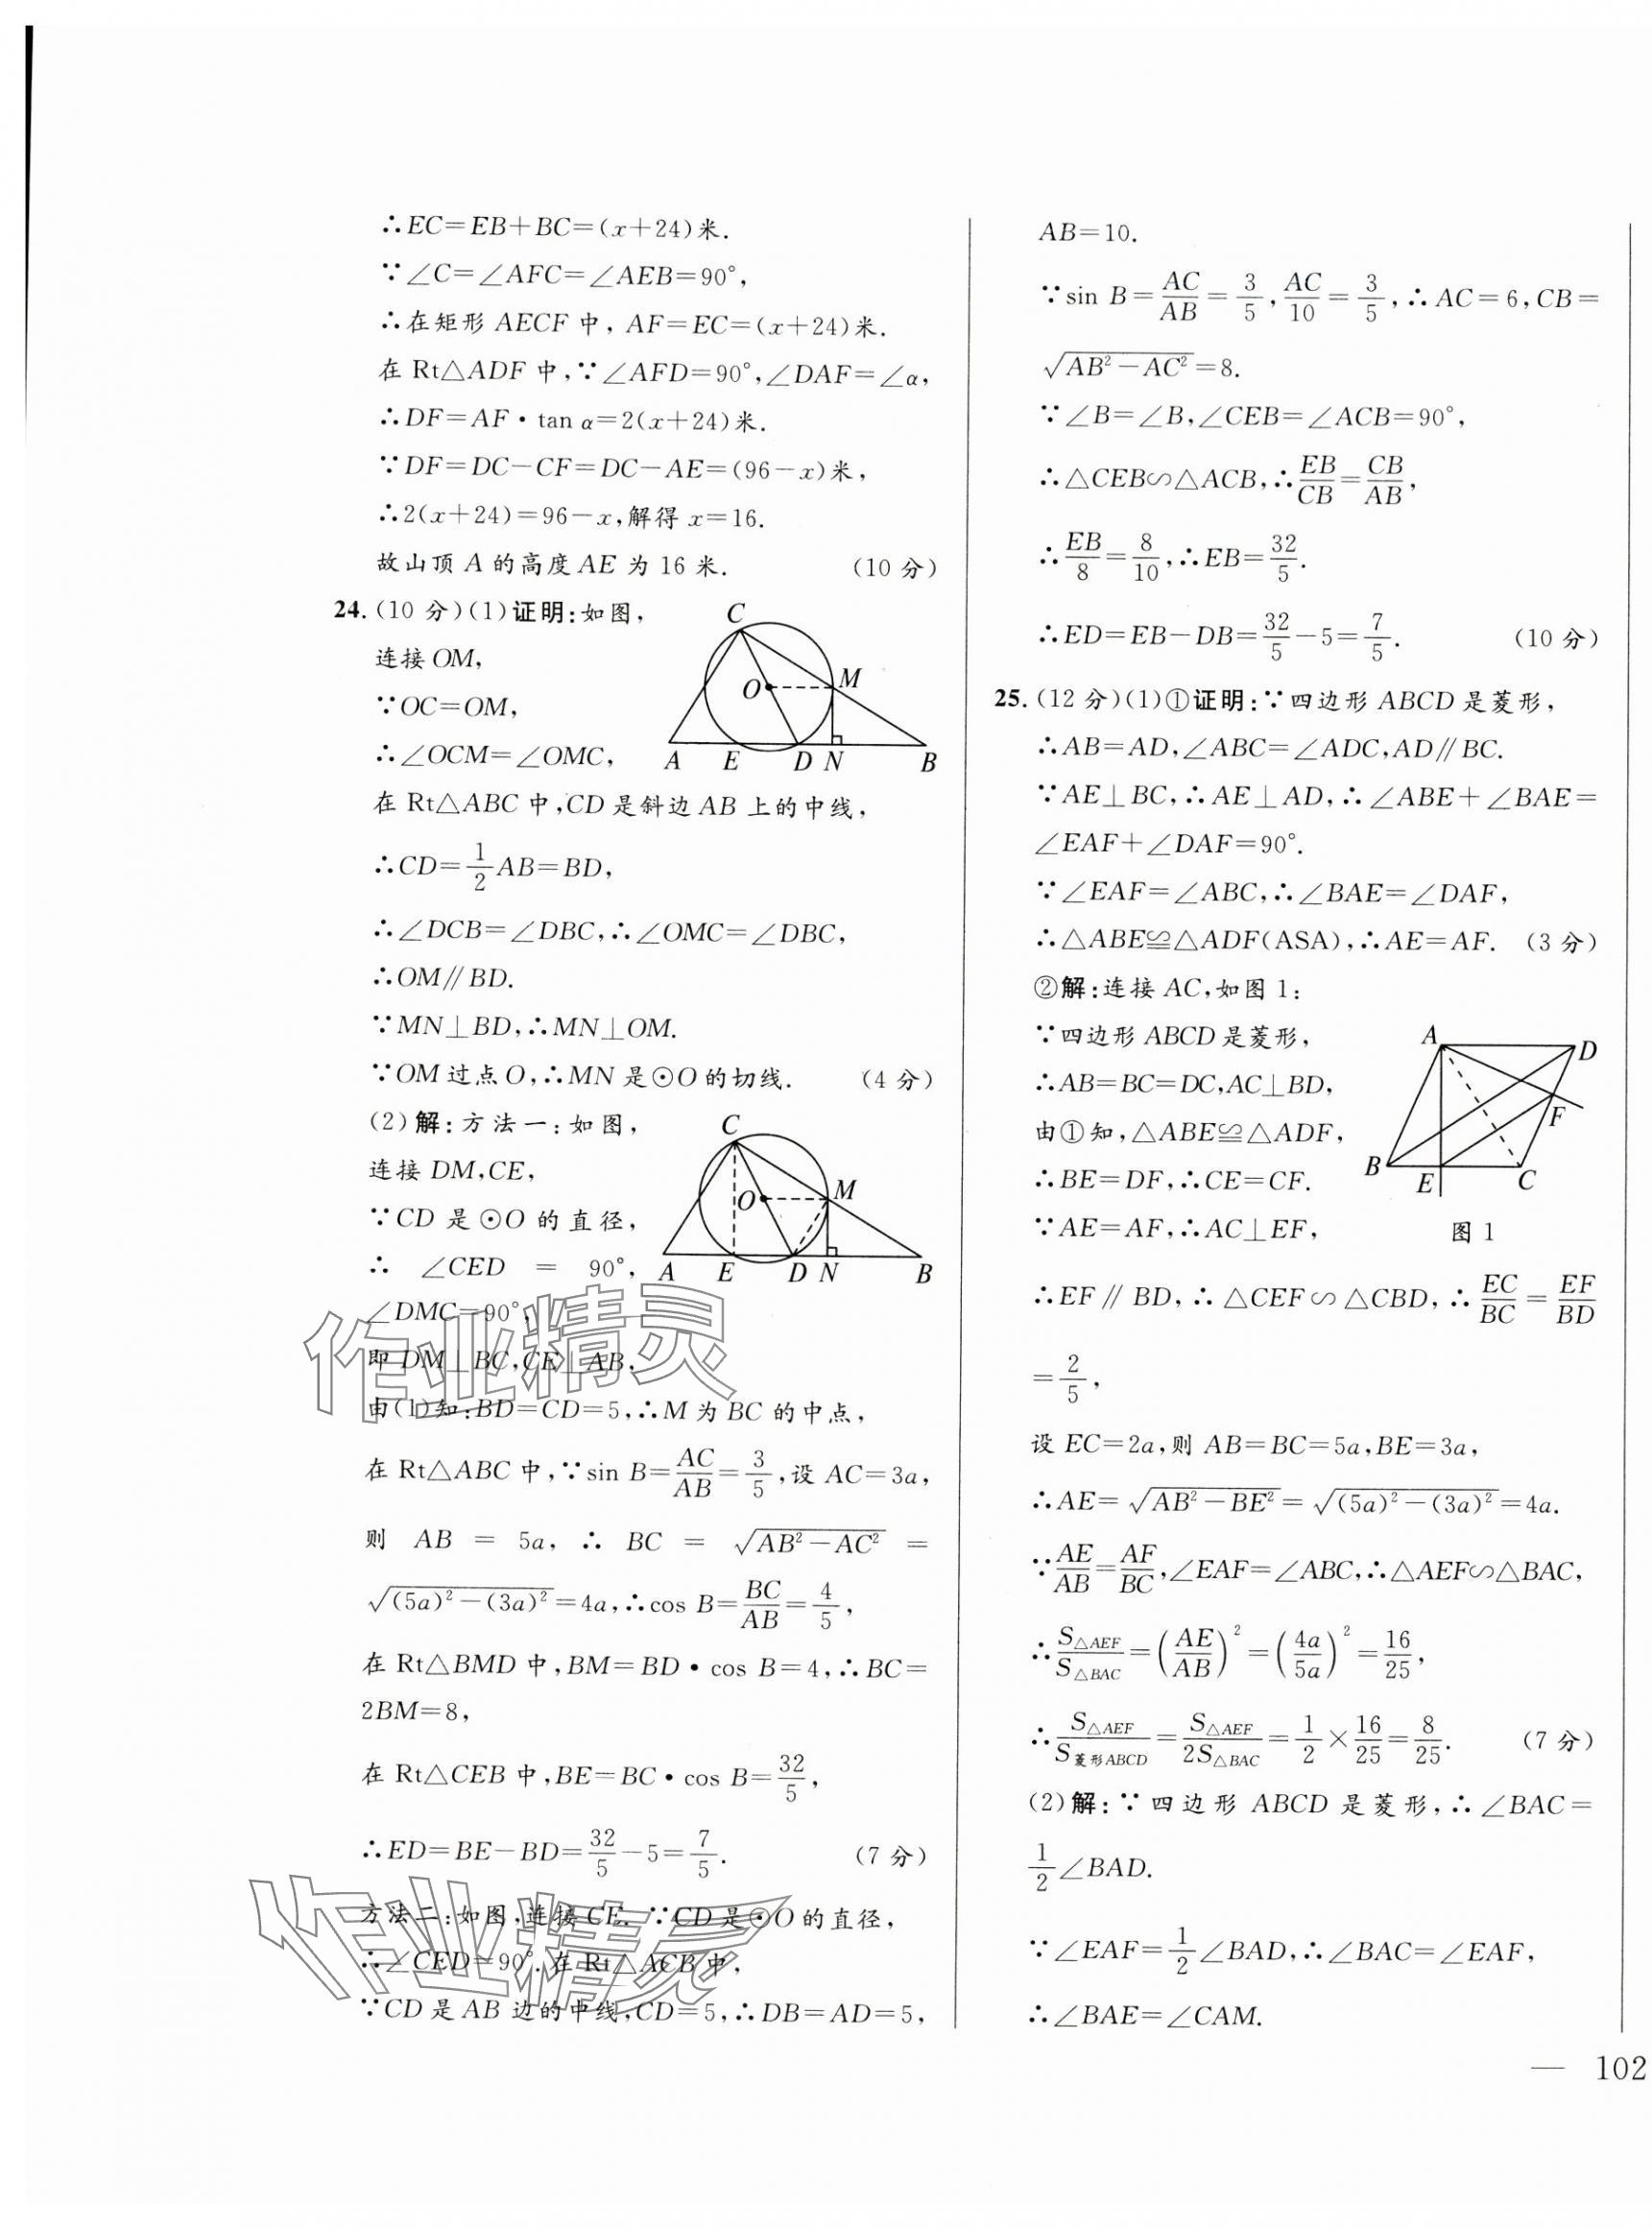 ∴EC=EB+BC=(x+24)米.
∵∠C=∠AFC=∠AEB=90°,
∴在矩形 AECF 中, AF=EC=(x+24)米.
在 Rt△ADF 中,∵∠AFD=90°,∠DAF=∠α,
∴DF=AF·tan α=2(x+24)米.
∵DF=DC-CF=DC-AE=(96-x)米,
∴2(x+24)=96-x,解得 x=16.
故山顶 A 的高度 AE 为 16 米. (10 分)
24.(10 分)(1)证明:如图,
连接 OM,
∵OC=OM,
∴∠OCM=∠OMC,
C
O
M
A E D N B
在 Rt△ABC 中,CD 是斜边 AB 上的中线,
∴CD=1/2AB=BD,
∴∠DCB=∠DBC,∴∠OMC=∠DBC,
∴OM∥BD.
∵MN⊥BD,∴MN⊥OM.
∵OM 过点 O,∴MN 是⊙O 的切线. (4 分)
(2)解:方法一:如图,
连接 DM,CE,
∵CD 是⊙O 的直径,
∴ ∠CED = 90°,
∠DMC=90°,
C
O
M
A E D N B
即 DM⊥BC,CE⊥AB,
由(1)知:BD=CD=5,∴M 为 BC 的中点,
在 Rt△ABC 中,∵sin B=AC/AB=3/5,设 AC=3a,
则 AB = 5a, ∴ BC = √(AB²-AC²) =
√((5a)²-(3a)²)=4a,∴cos B=BC/AB=4/5,
在 Rt△BMD 中,BM=BD·cos B=4,∴BC=
2BM=8,
在 Rt△CEB 中,BE=BC·cos B=32/5,
∴ED=BE-BD=32/5-5=7/5. (7 分)
方法二:如图,连接 CE. ∵CD 是⊙O 的直径,
∴∠CED=90°.在 Rt△ACB 中,
∵CD 是 AB 边的中线,CD=5,∴DB=AD=5,
AB=10.
∵sin B=AC/AB=3/5,AC/10=3/5,∴AC=6,CB=
√(AB²-AC²)=8.
∵∠B=∠B,∠CEB=∠ACB=90°,
∴△CEB∽△ACB,∴EB/CB=CB/AB,
∴EB/8=8/10,∴EB=32/5.
∴ED=EB-DB=32/5-5=7/5. (10 分)
25.(12 分)(1)①证明:∵四边形 ABCD 是菱形,
∴AB=AD,∠ABC=∠ADC,AD∥BC.
∵AE⊥BC,∴AE⊥AD,∴∠ABE+∠BAE=
∠EAF+∠DAF=90°.
∵∠EAF=∠ABC,∴∠BAE=∠DAF,
∴△ABE≌△ADF(ASA),∴AE=AF. (3 分)
②解:连接 AC,如图 1:
∵四边形 ABCD 是菱形,
∴AB=BC=DC,AC⊥BD,
由①知,△ABE≌△ADF,
∴BE=DF,∴CE=CF.
∵AE=AF,∴AC⊥EF,
A
D
F
B
E
C
图 1
∴EF∥BD,∴△CEF∽△CBD,∴EC/BC=EF/BD
=2/5,
设 EC=2a,则 AB=BC=5a,BE=3a,
∴AE=√(AB²-BE²)=√((5a)²-(3a)²)=4a.
∵AE/AB=AF/BC,∠EAF=∠ABC,∴△AEF∽△BAC,
∴S△AEF/S△BAC=(AE/AB)²=(4a/5a)²=16/25,
∴S△AEF/S菱形ABCD=S△AEF/2S△BAC=1/2×16/25=8/25. (7 分)
(2)解:∵四边形 ABCD 是菱形,∴∠BAC=
1/2∠BAD.
∵∠EAF=1/2∠BAD,∴∠BAC=∠EAF,
∴∠BAE=∠CAM.
— 102
作业精灵
作业精灵